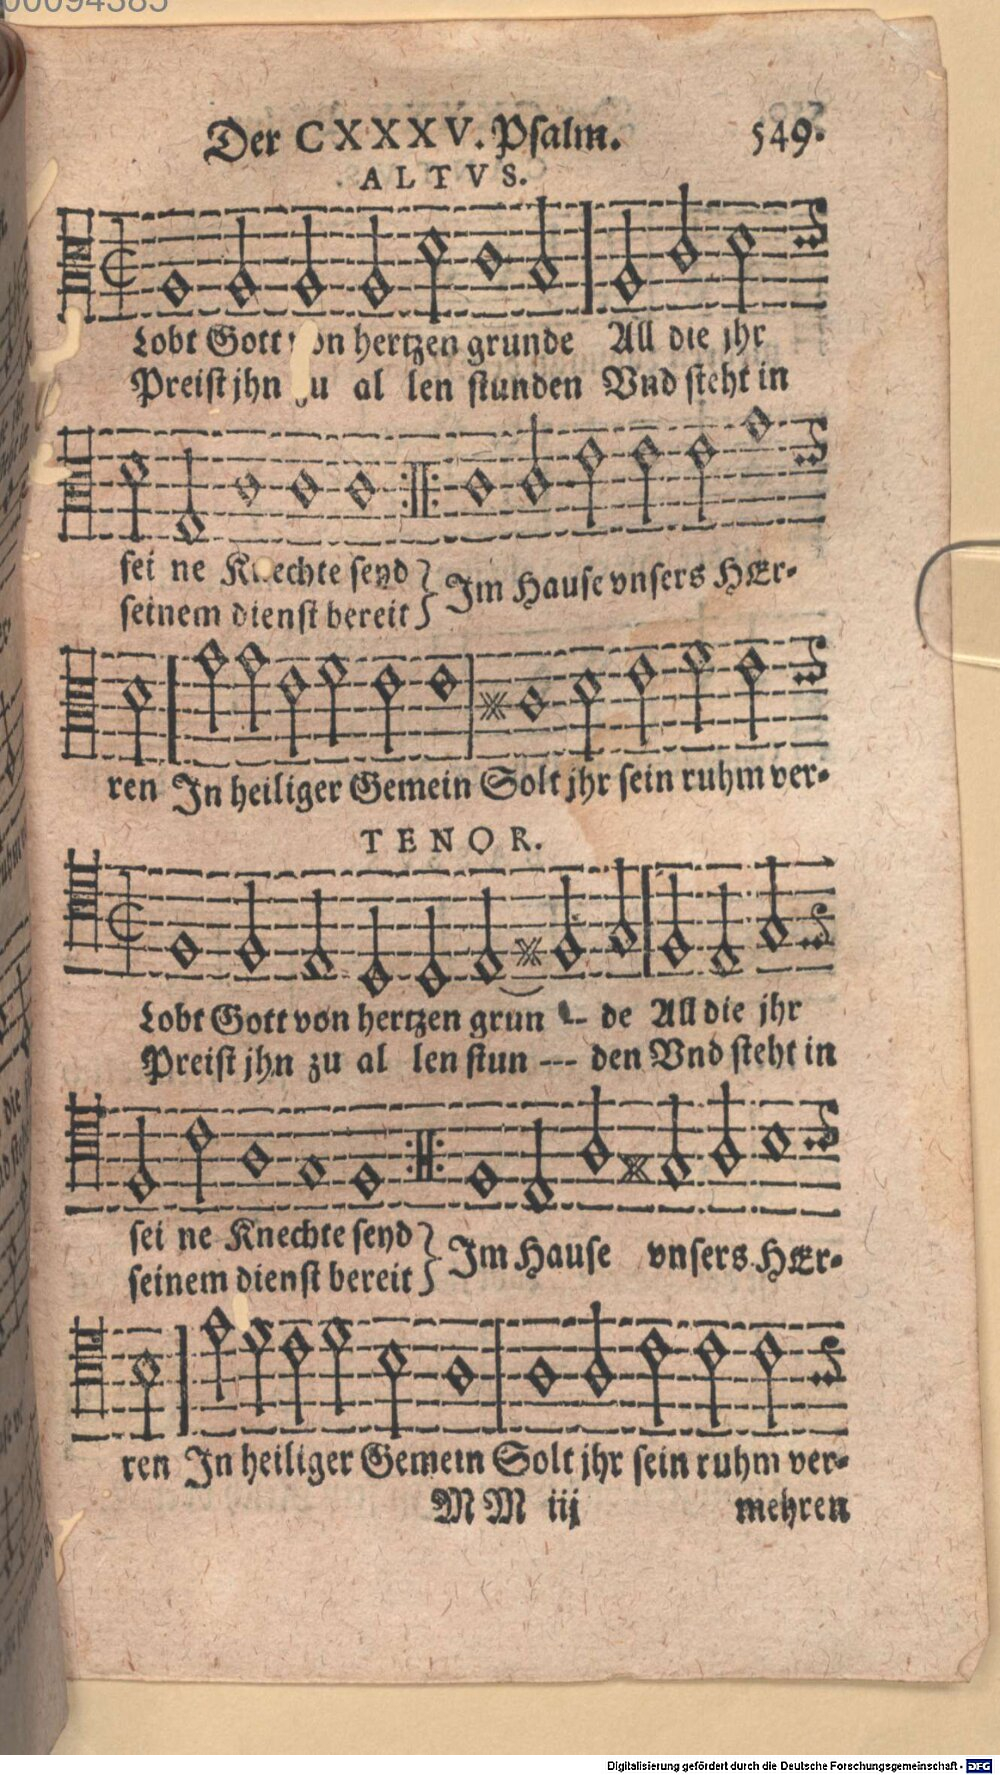 00094385
Der CXXXV. Psalm. 549.
ALTVS.
Lobt Gott von hertzen grunde All die jhr
Preist jhn zu al len stunden Vnd steht in
sei ne Knechte seyd } Im Hause vnsers HEr-
seinem dienst bereit }
ren In heiliger Gemein Solt jhr sein ruhm ver-
TENOR.
Lobt Gott von hertzen grun -- de All die jhr
Preist jhn zu al len stun --- den Vnd steht in
sei ne Knechte seyd } Im Hause vnsers HEr-
seinem dienst bereit }
ren In heiliger Gemein Solt jhr sein ruhm ver-
MM iij mehren
Digitalisierung gefördert durch die Deutsche Forschungsgemeinschaft - DFG